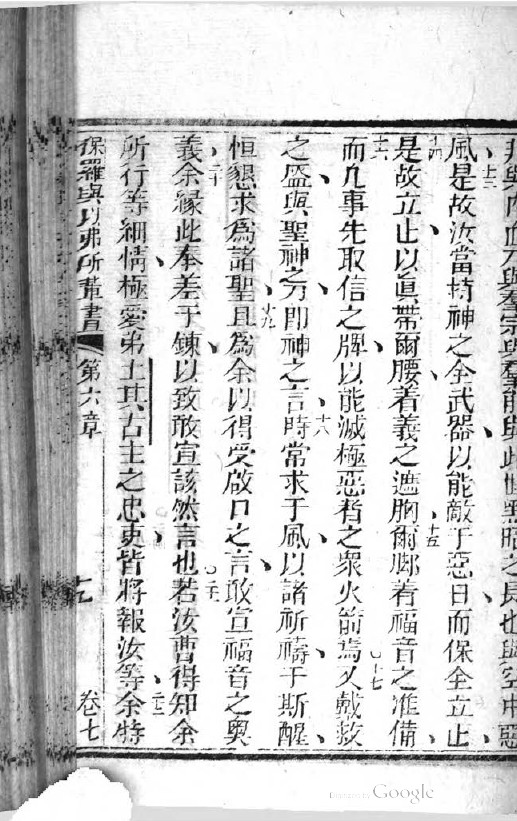 與肉血乃與羣宗與羣能與此世黑暗之長也與空中惡
十三
風是故汝當持神之全武器以能敵于惡日而保全立止
十四
是故立止以眞帶爾腰着義之遮胸爾脚着福音之准備
十五
十六
而凡事先取信之牌以能滅極惡者之衆火箭焉又戴救
十七
之盛與聖神之刀即神之言時常求于風以諸祈禱于斯醒
十八
恒懇求爲諸聖且為余以得受啟口之言敢宣福音之奧
十九
義余緣此奉差于鍊以致敢宣該然言也若汝曹得知余
二十
二一
所行等細情極愛弟土其古主之忠吏皆將報汝等余特
二二
保羅與以弗所輩書 第六章 卷七
Digitized by Google